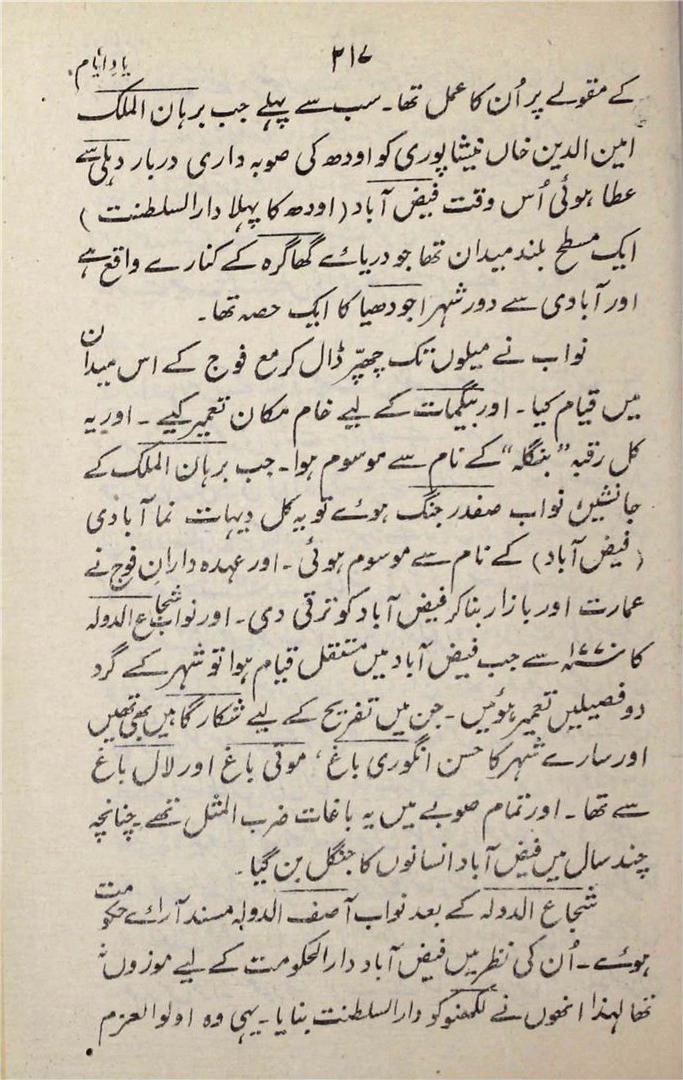 یادِ ایام
۳۱۷
کے مقولے پر اُن کا عمل تھا۔ سب سے پہلے جب برہان الملک
امین الدین خاں نیشاپوری کو اودھ کی صوبہ داری دربار دہلی سے
عطا ہوئی اُس وقت فیض آباد (اودھ کا پہلا دارالسلطنت)
ایک مسطح بلند میدان تھا جو دریائے گھاگرہ کے کنارے واقع ہے
اور آبادی سے دور شہر اجودھیا کا ایک حصہ تھا۔
نواب نے میلوں تک چھپّر ڈال کر مع فوج کے اس میدان
میں قیام کیا۔ اور بیگیمات کے لیے خام مکان تعمیر کیے۔ اور یہ
کل رقبہ "بنگلہ" کے نام سے موسوم ہوا۔ جب برہان الملک کے
جانشین نواب صفدر جنگ ہوئے تو یہ کل دیہات نما آبادی
(فیض آباد) کے نام سے موسوم ہوئی۔ اور عہدہ دارانِ فوج نے
عمارت اور بازار بنا کر فیض آباد کو ترقی دی۔ اور نواب شجاع الدولہ
کا ۱۷۷۰ء سے جب فیض آباد میں مستقل قیام ہوا تو شہر کے گرد
دو فصیلیں تعمیر ہوئیں۔ جن میں تفریح کے لیے شکار گاہیں بھی تھیں
اور سارے شہر کا حسن انگوری باغ، موتی باغ اور لال باغ
سے تھا۔ اور تمام صوبے میں یہ باغات ضرب المثل تھے۔ چنانچہ
چند سال میں فیض آباد انسانوں کا جنگل بن گیا۔
شجاع الدولہ کے بعد نواب آصف الدولہ مسند آرائے حکومت
ہوئے۔ اُن کی نظر میں فیض آباد دارالحکومت کے لیے موزوں نہ
تھا لہذا انھوں نے لکھنؤ کو دارالسلطنت بنایا۔ یہی وہ اولوالعزم